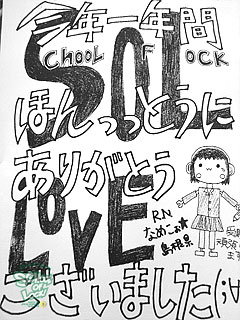 今年一年間
SCHOOL OF LOCK
ほんっっとうに
ありがとう
LOVE
R.N
なめこお★
島根県
ございました(;∀